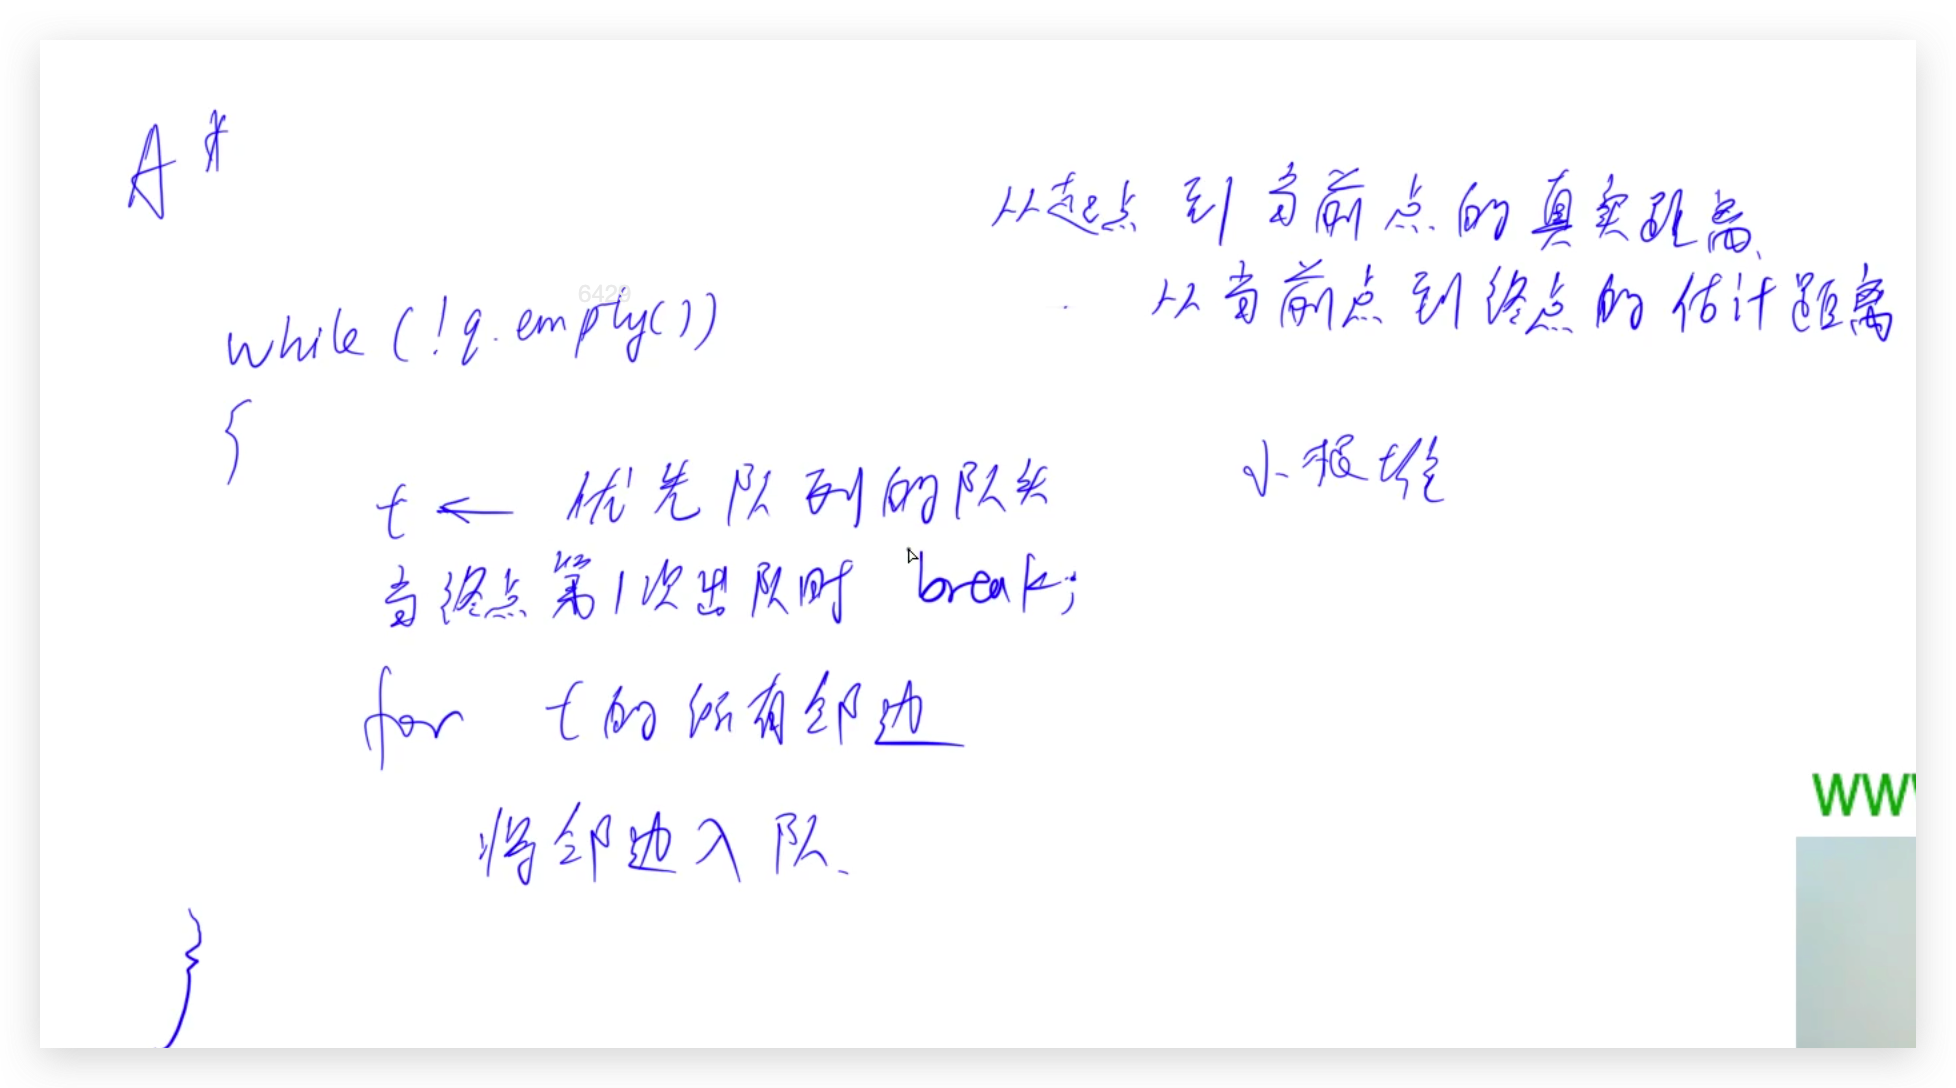 A*
从起点到当前点的真实距离
从当前点到终点的估计距离
6429
while (!q.empty())
{
小根堆
t ← 优先队列的队头
当终点第1次出队时 break;
for t的所有邻边
将邻边入队
}